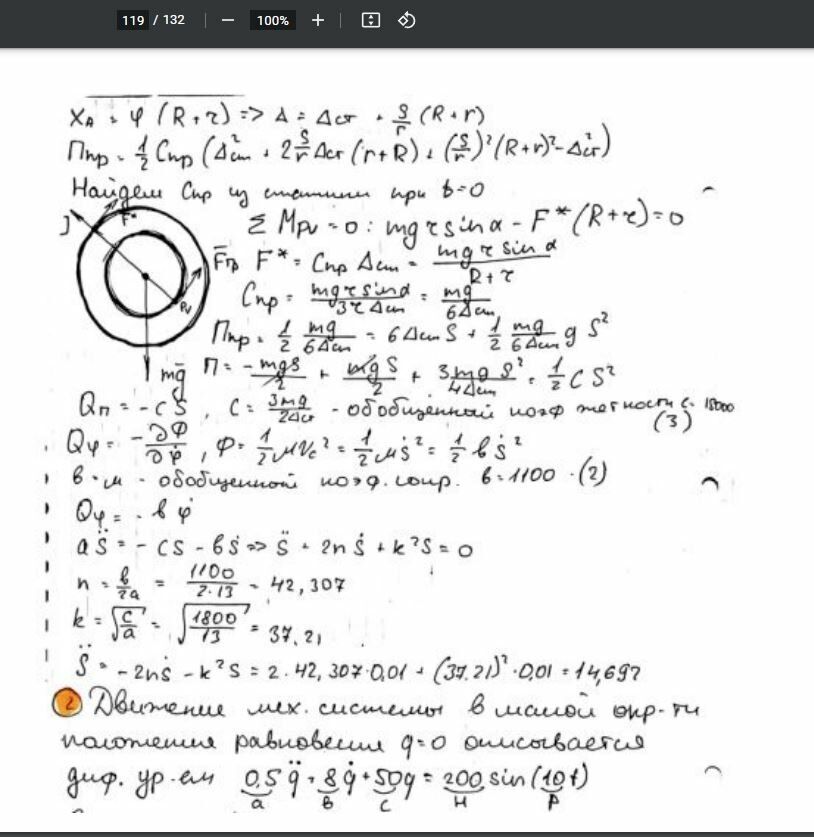 119 / 132 100%
X_A = φ (R+r) => Δ = Δст + S/r (R+r)
Ппр = 1/2 Cпр (Δ²ст + 2 S/r Δст (r+R) + (S/r)² (R+r)² - Δ²ст)
Найдем Cпр из статики при t=0
Σ M_Pv = 0 : mg r sin α - F* (R+r) = 0
F* Fтр F* = Cпр Δст = mg r sin α / R+r
Cпр = mg r sin α / 3r Δст = mg / 6Δст
Pv
Ппр = 1/2 mg / 6Δст = 6Δст S + 1/2 mg / 6Δст g S²
mg П = - mgS / 2 + mgS / 2 + 3mg S² / 4Δст = 1/2 C S²
Qп = -cS, C = 3mg / 2Δст - обобщенный коэф жеткости c = 18000
(3)
Qφ = -∂Φ / ∂φ̇, Φ = 1/2 μVc² = 1/2 μṡ² = 1/2 b ṡ²
b = μ - обобщенный коэф. сопр. b = 1100 (2)
Qφ = - b φ̇
a S̈ = - cS - bṡ => S̈ + 2n ṡ + k²S = 0
n = b/2a = 1100 / 2·13 = 42,307
k = √c/a = √1800/13 = 37,21
S̈ = -2nṡ - k²S = 2·42,307·0,01 + (37,21)²·0,01 = 14,692
2 Движение мех. системы в малой окр-ти
положения равновесия q=0 описывается
диф. ур-ем 0,5 q̈ + 8 q̇ + 50q = 200 sin(10t)
a b c H p